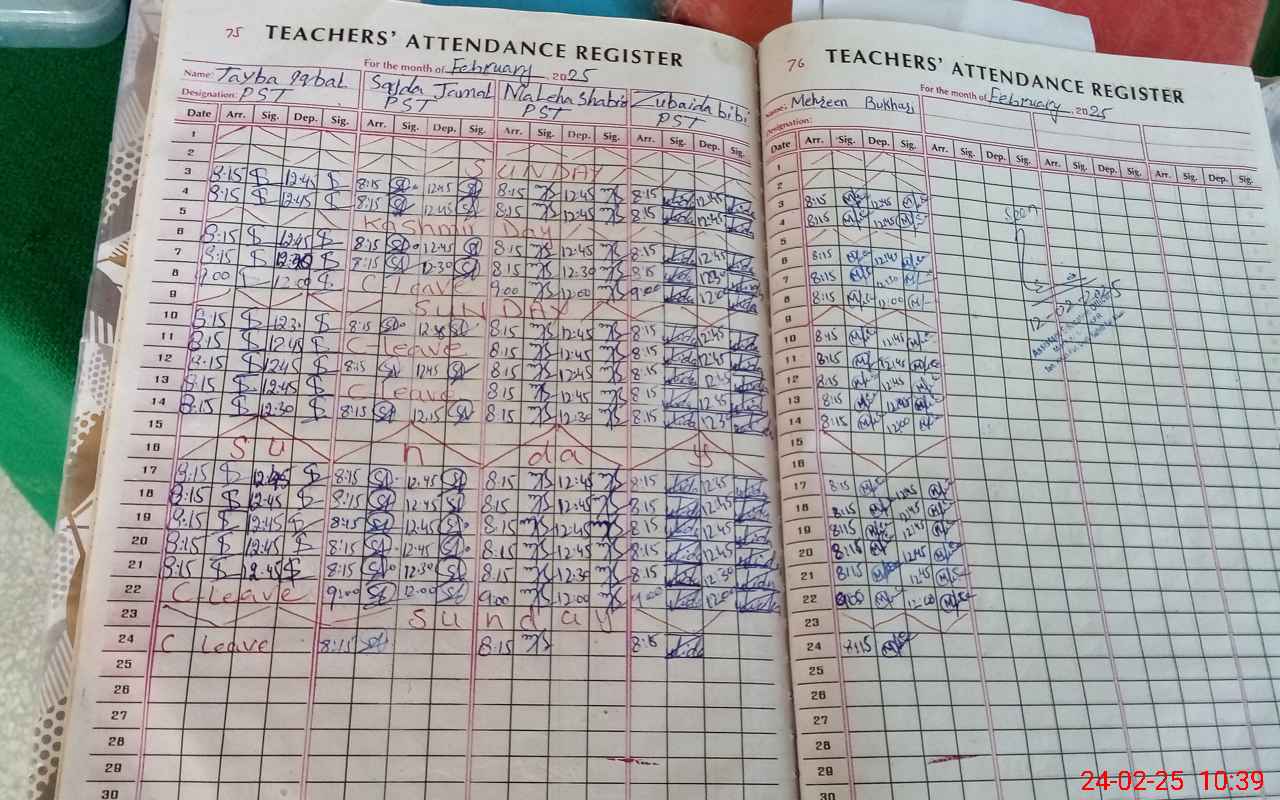 75 TEACHERS' ATTENDANCE REGISTER
For the month of February 2025
Name: Tayba Iqbal Sajda Jamal Maleha Shabir Zubaida bibi
Designation: PST PST PST PST
Date Arr. Sig. Dep. Sig. Arr. Sig. Dep. Sig. Arr. Sig. Dep. Sig. Arr. Sig. Dep. Sig.
1
2 SUNDAY
3 8:15 12:45 8:15 12:45 8:15 12:45 8:15 12:45
4 8:15 12:45 8:15 12:45 8:15 12:45 8:15 12:45
5 Kashmir Day
6 8:15 12:45 8:15 12:45 8:15 12:45 8:15 12:45
7 8:15 12:30 8:15 12:30 8:15 12:30 8:15 12:30
8 9:00 12:00 C-leave 9:00 12:00 9:00 12:00
9 SUNDAY
10 8:15 8:15 8:15 12:45 8:15 12:45
11 8:15 12:45 C-leave 8:15 12:45 8:15 12:45
12 8:15 12:45 8:15 12:45 8:15 12:45 8:15 12:45
13 8:15 12:45 C leave 8:15 12:45 8:15 12:45
14 8:15 12:30 8:15 12:15 8:15 12:30 8:15
15
16 Sunday
17 8:15 12:45 8:15 12:45 8:15 12:45 8:15 12:45
18 8:15 12:45 8:15 12:45 8:15 12:45 8:15 12:45
19 8:15 12:45 8:45 12:45 8:15 12:45 8:15 12:45
20 8:15 12:45 8:15 12:45 8:15 12:45 8:15 12:45
21 8:15 12:45 8:15 12:30 8:15 12:30 8:15 12:30
22 C-Leave 9:00 12:00 9:00 12:00 9:00 12:00
23 Sunday
24 C Leave 8:15 8:15 8:15
25
26
27
28
29
30
76 TEACHERS' ATTENDANCE REGISTER
For the month of February 2025
Name: Mehreen Bukhari
Designation:
Date Arr. Sig. Dep. Sig. Arr. Sig. Dep. Sig. Arr. Sig. Dep. Sig. Arr. Sig. Dep. Sig.
1
2
3 8:15 12:45
4 8:15 12:45
5
6 8:15 12:45
7 8:15
8 8:15 12:00
9
10 8:15 12:45
11 8:15 12:45
12 8:15 12:45
13 8:15 12:45
14 8:15 12:00
15
16
17 8:15 12:45
18 8:15 12:45
19 8:15 12:45
20 8:15 12:45
21 8:15 12:45
22 9:00 12:00
23
24 8:15
25
26
27
28
29
30
seen
12-02-2025
24-02-25 10:39